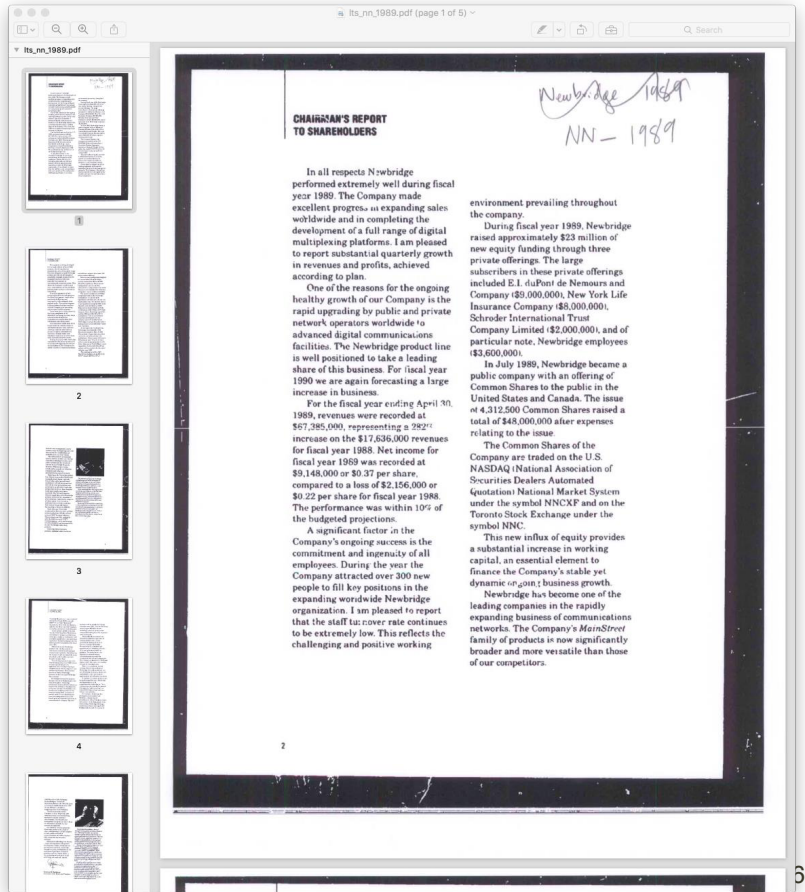 lts_nn_1989.pdf (page 1 of 5)
Search
lts_nn_1989.pdf
1
2
3
4
Newbridge 1989
NN - 1989
CHAIRMAN'S REPORT
TO SHAREHOLDERS
In all respects Newbridge
performed extremely well during fiscal
year 1989. The Company made
excellent progress in expanding sales
worldwide and in completing the
development of a full range of digital
multiplexing platforms. I am pleased
to report substantial quarterly growth
in revenues and profits, achieved
according to plan.
One of the reasons for the ongoing
healthy growth of our Company is the
rapid upgrading by public and private
network operators worldwide to
advanced digital communications
facilities. The Newbridge product line
is well positioned to take a leading
share of this business. For fiscal year
1990 we are again forecasting a large
increase in business.
For the fiscal year ending April 30,
1989, revenues were recorded at
$67,385,000, representing a 282%
increase on the $17,636,000 revenues
for fiscal year 1988. Net income for
fiscal year 1989 was recorded at
$9,148,000 or $0.37 per share,
compared to a loss of $2,156,000 or
$0.22 per share for fiscal year 1988.
The performance was within 10% of
the budgeted projections.
A significant factor in the
Company's ongoing success is the
commitment and ingenuity of all
employees. During the year the
Company attracted over 300 new
people to fill key positions in the
expanding worldwide Newbridge
organization. I am pleased to report
that the staff turnover rate continues
to be extremely low. This reflects the
challenging and positive working
environment prevailing throughout
the company.
During fiscal year 1989, Newbridge
raised approximately $23 million of
new equity funding through three
private offerings. The large
subscribers in these private offerings
included E.I. duPont de Nemours and
Company ($9,000,000), New York Life
Insurance Company ($8,000,000),
Schroder International Trust
Company Limited ($2,000,000), and of
particular note, Newbridge employees
($3,600,000).
In July 1989, Newbridge became a
public company with an offering of
Common Shares to the public in the
United States and Canada. The issue
of 4,312,500 Common Shares raised a
total of $48,000,000 after expenses
relating to the issue.
The Common Shares of the
Company are traded on the U.S.
NASDAQ (National Association of
Securities Dealers Automated
Quotation) National Market System
under the symbol NNCXF and on the
Toronto Stock Exchange under the
symbol NNC.
This new influx of equity provides
a substantial increase in working
capital, an essential element to
finance the Company's stable yet
dynamic ongoing business growth.
Newbridge has become one of the
leading companies in the rapidly
expanding business of communications
networks. The Company's MainStreet
family of products is now significantly
broader and more versatile than those
of our competitors.
2
6